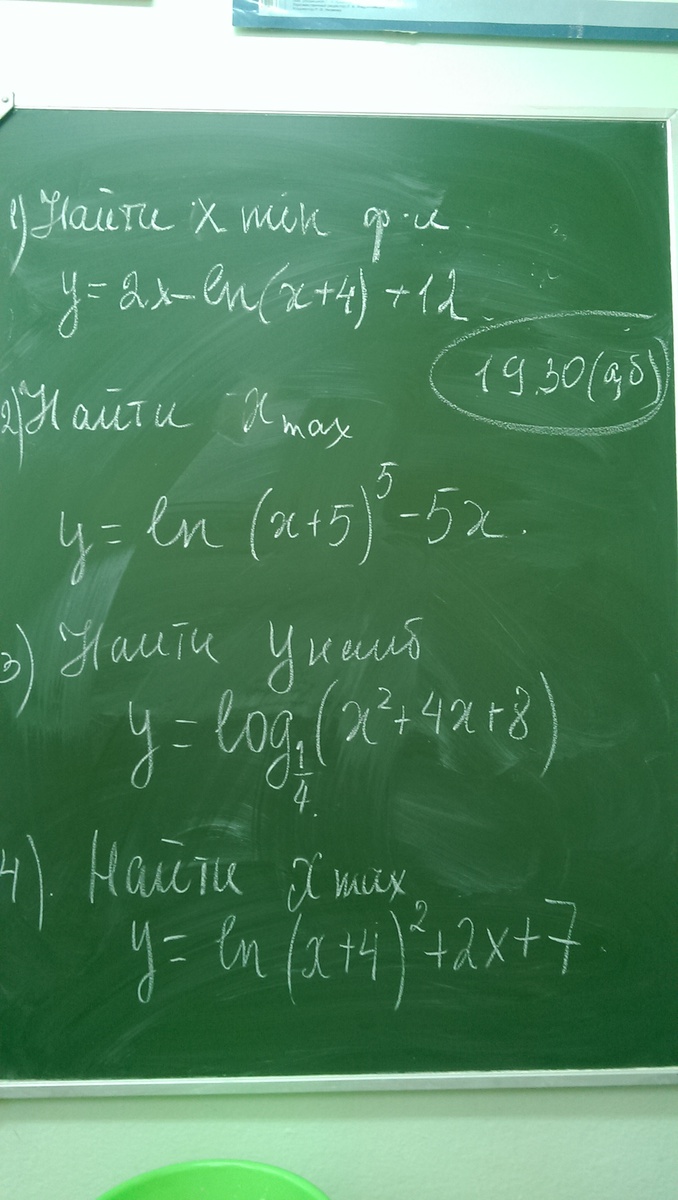 1) Найти x min ф-и
y = 2x - ln(x+4) + 12
19.30(а,б)
2) Найти x max
y = ln (x+5)⁵ - 5x.
3) Найти y наиб
y = log_{1/4} (x² + 4x + 8)
4). Найти x max
y = ln (x+4)² + 2x + 7.